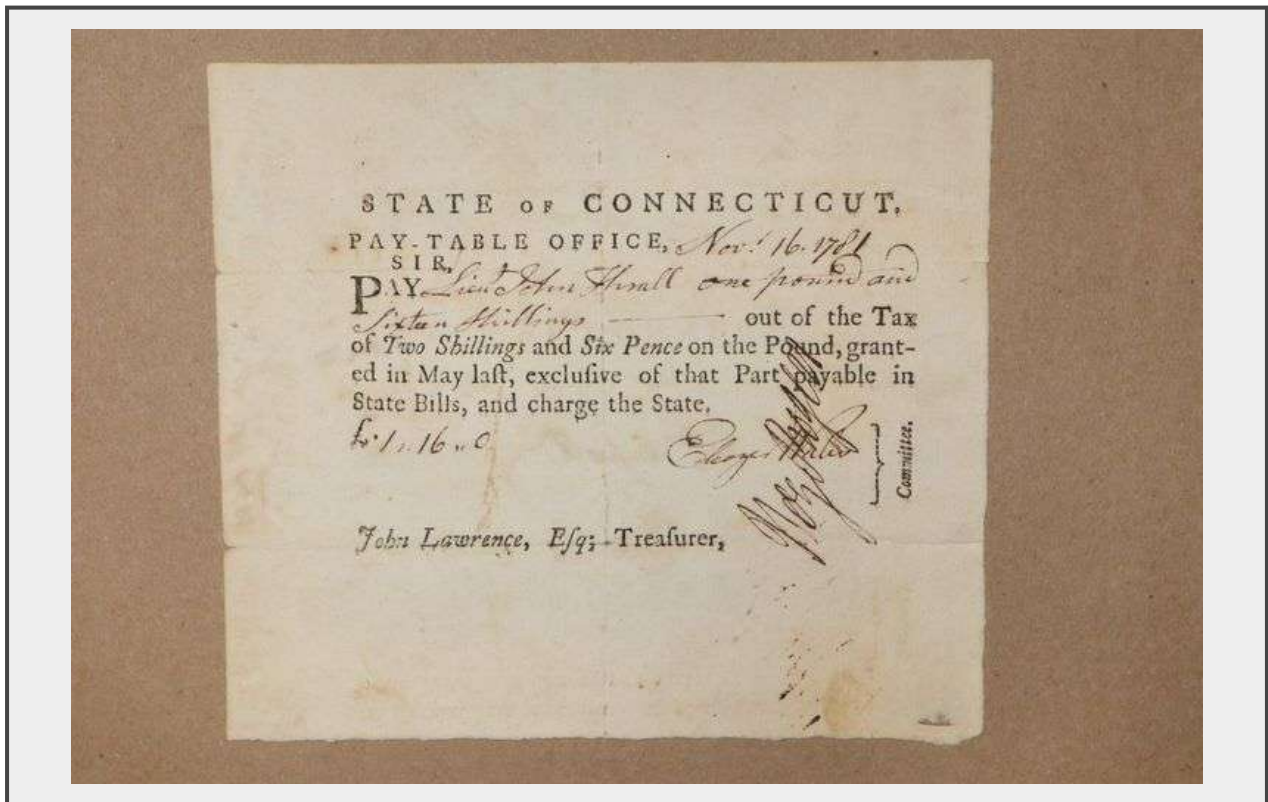 STATE OF CONNECTICUT,
PAY-TABLE OFFICE, Novr. 16. 1781
SIR,
PAY Lieut John Thrall one pound and
Sixteen Shillings out of the Tax
of Two Shillings and Six Pence on the Pound, grant-
ed in May laſt, excluſive of that Part payable in
State Bills, and charge the State.
£.1,,16,,0
Eleazer Wales
Committee.
John Lawrence, Eſq; Treaſurer,